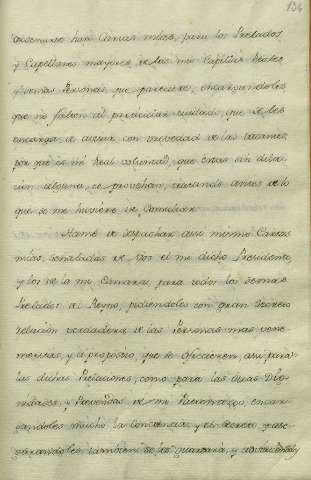 134
Ordenarse han Cartas mias, para los Prelados
y Capellanes mayores, de las mis Capillas Reales
y demas Personas, que pareciere, encargandoles,
que no falten al particular cuidado, que se les
encarga de avisar con brevedad de las vacantes,
por que es mi Real voluntad, que estas sin dila-
cion alguna, se provehan, tratando antes de lo
que se me huviere de Consultar.
Hanse de despachar assi mismo Cartas
mias, señaladas de Vos el mi dicho Presidente,
y los de la mi Camara, para todos los demas
Prelados del Reyno, pidiendoles con gran secreto
relacion verdadera de las Personas mas vene-
mericas, y a proposito, que se ofrecieren, assi para
las dichas Prelaciones, como para las otras Dig-
nidades, y Prevendas de mi Patronazgo, encar-
gandoles mucho la conciencia, y el secreto, y
tambien se les guardará, y